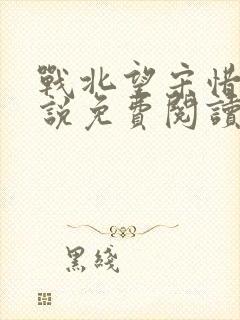 戰北望宋惜
說免費閱讀
黑綫